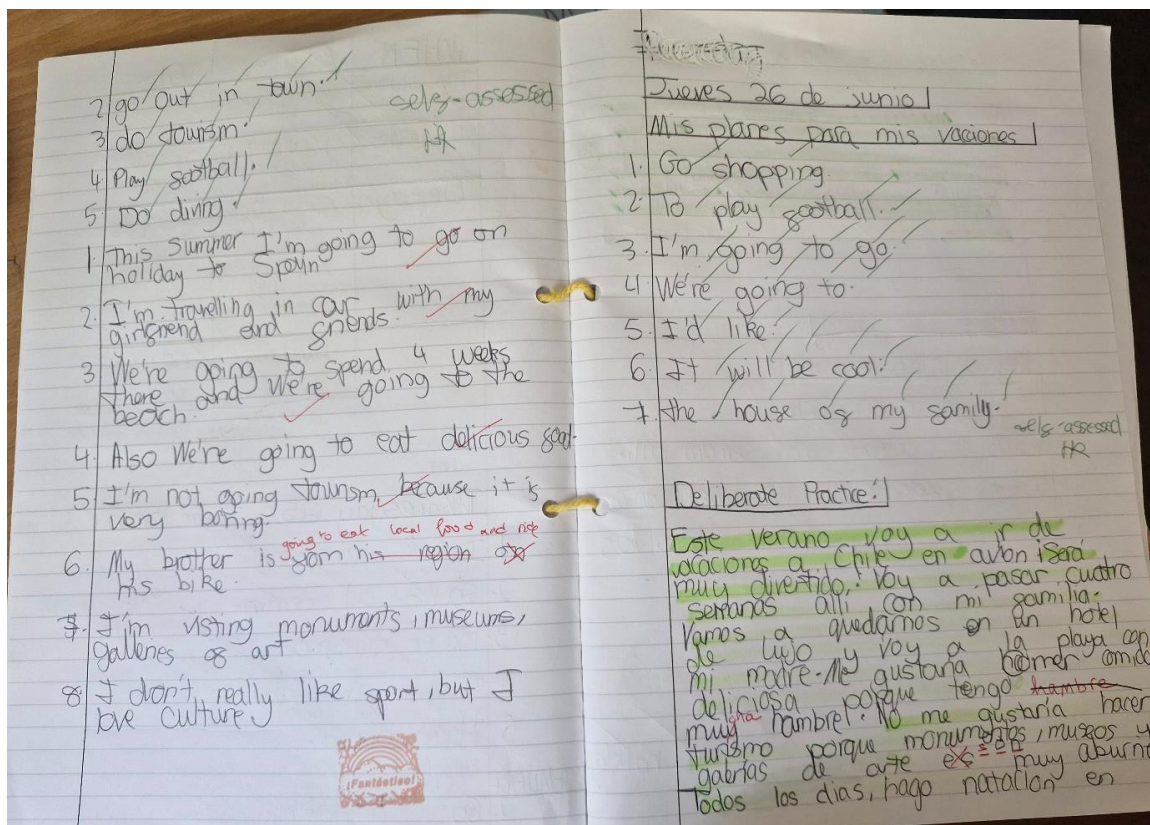 2 go out in town.
self-assessed
HR
3 do tourism.
4 Play football.
5 Do diving.
1. This summer I'm going to go on
holiday to Spain
2. I'm travelling in car with my
girlfriend and friends.
3 We're going to spend 4 weeks
there and we're going to the
beach.
4. Also We're going to eat delicious food.
5 I'm not going tourism, because it is
very boring.
going to eat local food and ride
6. My brother is from his region
his bike.
7. I'm visting monuments, museums,
galleries of art
8. I don't really like sport, but I
love culture.
¡Fantástico!
Jueves 26 de junio
Mis planes para mis vaciones
1. Go shopping.
2. To play football.
3. I'm going to go.
4. We're going to.
5. I'd like.
6. It will be cool.
7. the house of my family.
self-assessed
HR
Deliberate Practice:
Este verano voy a ir de
vacaciones a Chile en avión ¡Será
muy divertido! Voy a pasar cuatro
semanas allí con mi familia.
Vamos a quedarnos en un hotel
de lujo y voy a la playa con
mi madre. Me gustaría comer comida
deliciosa porque tengo hambre
mucha hambre! No me gustaría hacer
turismo porque monumentos, museos y
de arte son muy
Todos los dias, hago natación en